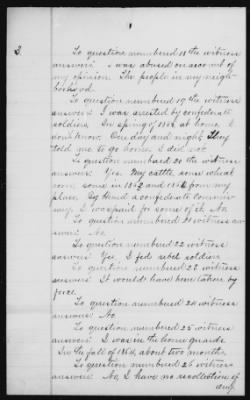 2.
To question numbered 18 the witness
answers: I was abused on account of
my opinion. The people in my neigh-
borhood.
To question numbered 19 the witness
answers: I was arrested by confederate
soldiers. In spring of 1865 at home. I
don't know. One day and night. They
told me to go home. I did not.
To question numbered 20 the witness
answers: Yes. My cattle, some wheat
corn, some in 1862 and 1864 from my
place. By a confederate
I was paid for some of it. No.
To question numbered 21 witness an-
swers: No.
To question numbered 22 witness
answers: Yes, I fed rebel soldiers.
To question numbered 23 witness
answers: It would have been taken by
force.
To question numbered 24 witness
answers: No.
To question numbered 25 witness
answers: I was in the home guards.
In the fall of 1864, about two months.
To question numbered 26 witness
answers: No, I have no recollection of
any